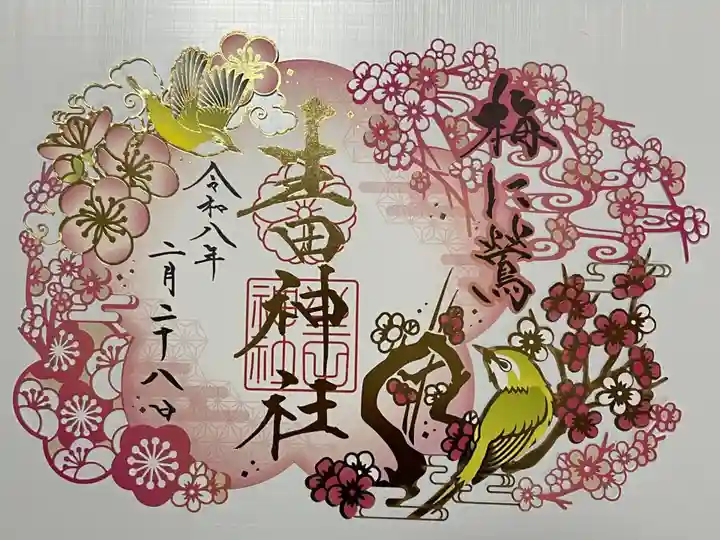 梅に鶯
吉田神社
令和八年
二月二十八日